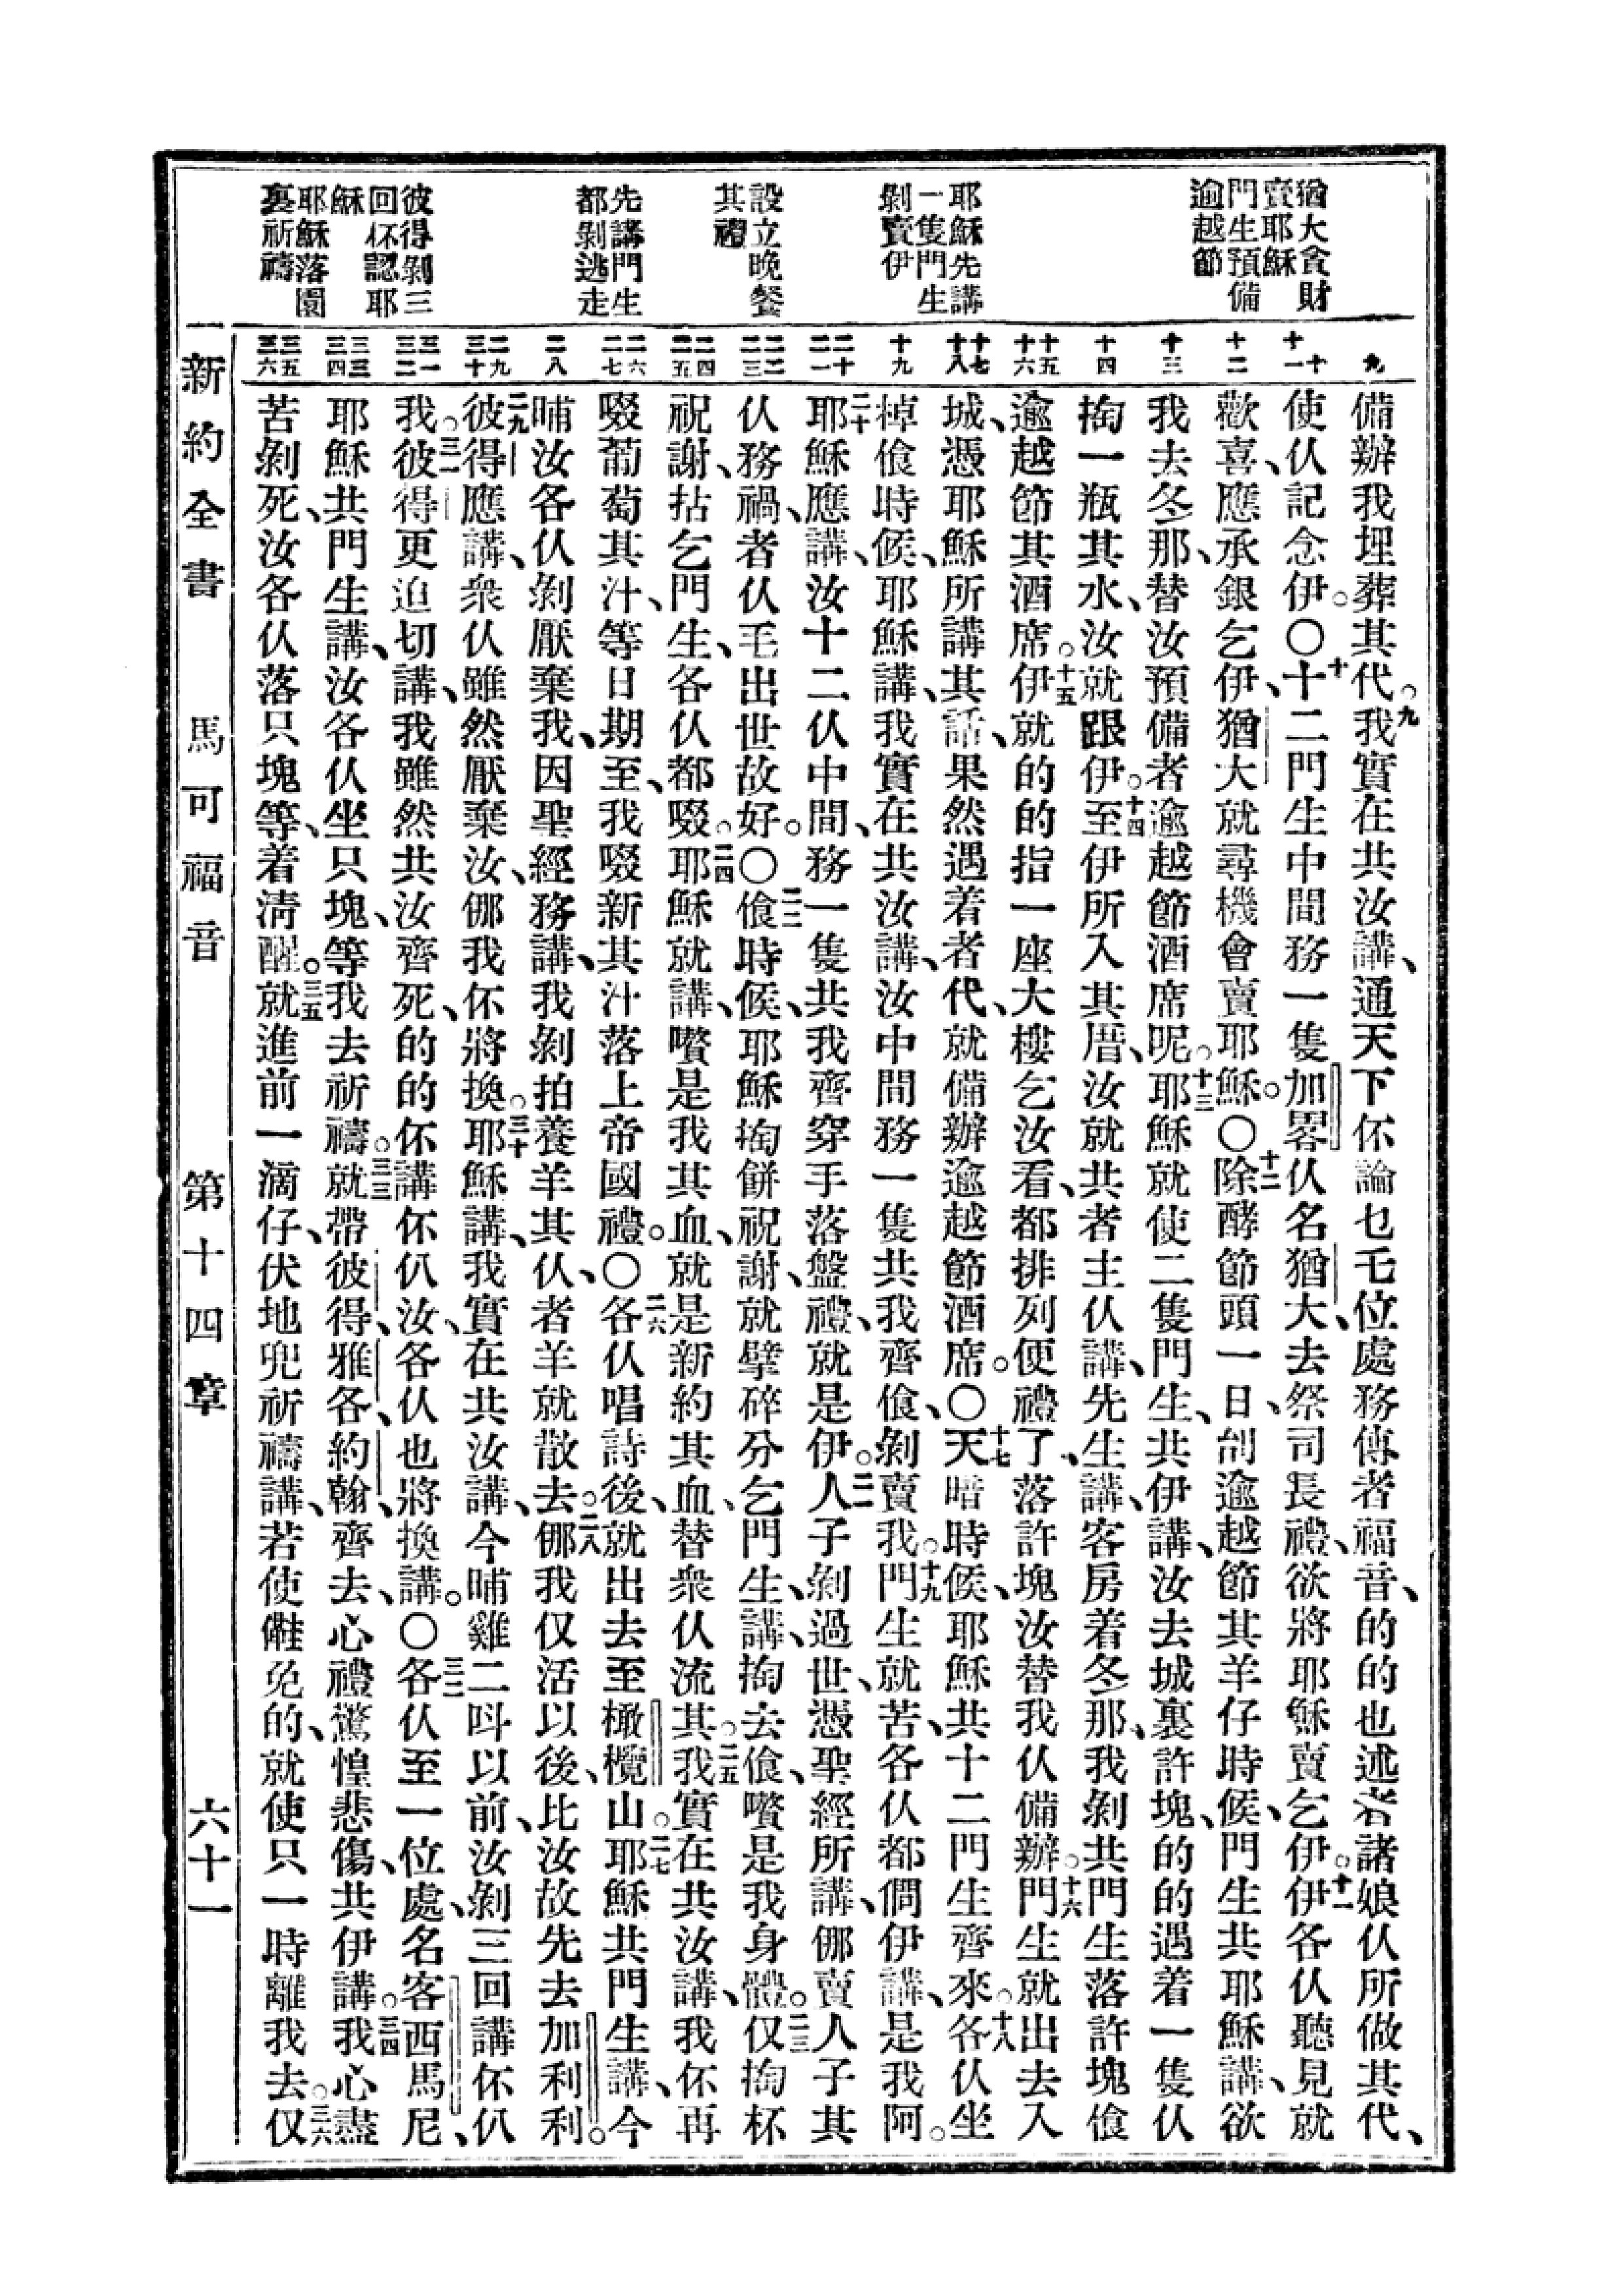 猶大貪財
賣耶穌
門生預備
逾越節
耶穌先講
一隻門生
剝賣伊
設立晚餐
其禮
先講門生
都剝逃走
彼得剝三
回伓認耶
穌
耶穌落園
裏祈禱
九
十
十一
十二
十三
十四
十五
十六
十七
十八
十九
二十
二一
二二
二三
二四
二五
二六
二七
二八
二九
三十
三一
三二
三三
三四
三五
三六
備辦我埋葬其代。九我實在共汝講、通天下伓論乜乇位處務傳者福音、的的也述者諸娘仈所做其代、
使仈記念伊。〇十十二門生中間務一隻加畧仈名猶大、去祭司長禮、欲將耶穌賣乞伊。十一伊各仈聽見就
歡喜、應承銀乞伊、猶大就尋機會賣耶穌。〇十二除酵節頭一日、刣逾越節其羊仔時候、門生共耶穌講、欲
我去冬那、替汝預備者逾越節酒席呢。十三耶穌就使二隻門生、共伊講、汝去城裏許塊、的的遇着一隻仈
掏一瓶其水、汝就跟伊。十四至伊所入其厝、汝就共者主仈講、先生講、客房着冬那、我剝共門生落許塊飡
逾越節其酒席。十五伊就的的指一座大樓乞汝看、都排列便禮了、落許塊汝替我仈備辦。十六門生就出去入
城、憑耶穌所講其話、果然遇着者代、就備辦逾越節酒席。〇十七天暗時候、耶穌共十二門生齊來。十八各仈坐
棹飡時候、耶穌講、我實在共汝講、汝中間務一隻共我齊飡、剝賣我。十九門生就苦、各仈都倜伊講、是我阿。
二十耶穌應講、汝十二仈中間、務一隻共我齊穿手落盤禮、就是伊。二一人子剝過世、憑聖經所講、㑚賣人子其
仈務禍、者仈毛出世故好。〇二二飡時候、耶穌掏餅祝謝、就擘碎分乞門生、講、掏去飡、嚽是我身體。二三仅掏杯
祝謝、拈乞門生、各仈都啜。二四耶穌就講、嚽是我其血、就是新約其血、替衆仈流其。二五我實在共汝講、我伓再
啜葡萄其汁、等日期至、我啜新其汁落上帝國禮。〇二六各仈唱詩後、就出去至橄欖山。二七耶穌共門生講、今
晡汝各仈剝厭棄我、因聖經務講、我剝拍養羊其仈、者羊就散去。二八㑚我仅活以後、比汝故先去加利利。
二九彼得應講、衆仈雖然厭棄汝、㑚我伓將換。三十耶穌講、我實在共汝講、今晡雞二呌以前、汝剝三回講伓仈
我。三一彼得更迫切講、我雖然共汝齊死、的的伓講伓仈汝、各仈也將換講。〇三二各仈至一位處、名客西馬尼、
耶穌共門生講、汝各仈坐只塊、等我去祈禱。三三就帶彼得、雅各、約翰、齊去、心禮驚惶悲傷、共伊講。三四我心盡
苦剝死、汝各仈落只塊等、着淸醒。三五就進前一滴仔、伏地兜祈禱講、若使㒲免的、就使只一時離我去。三六仅
新約全書　馬可福音　第十四章　六十一